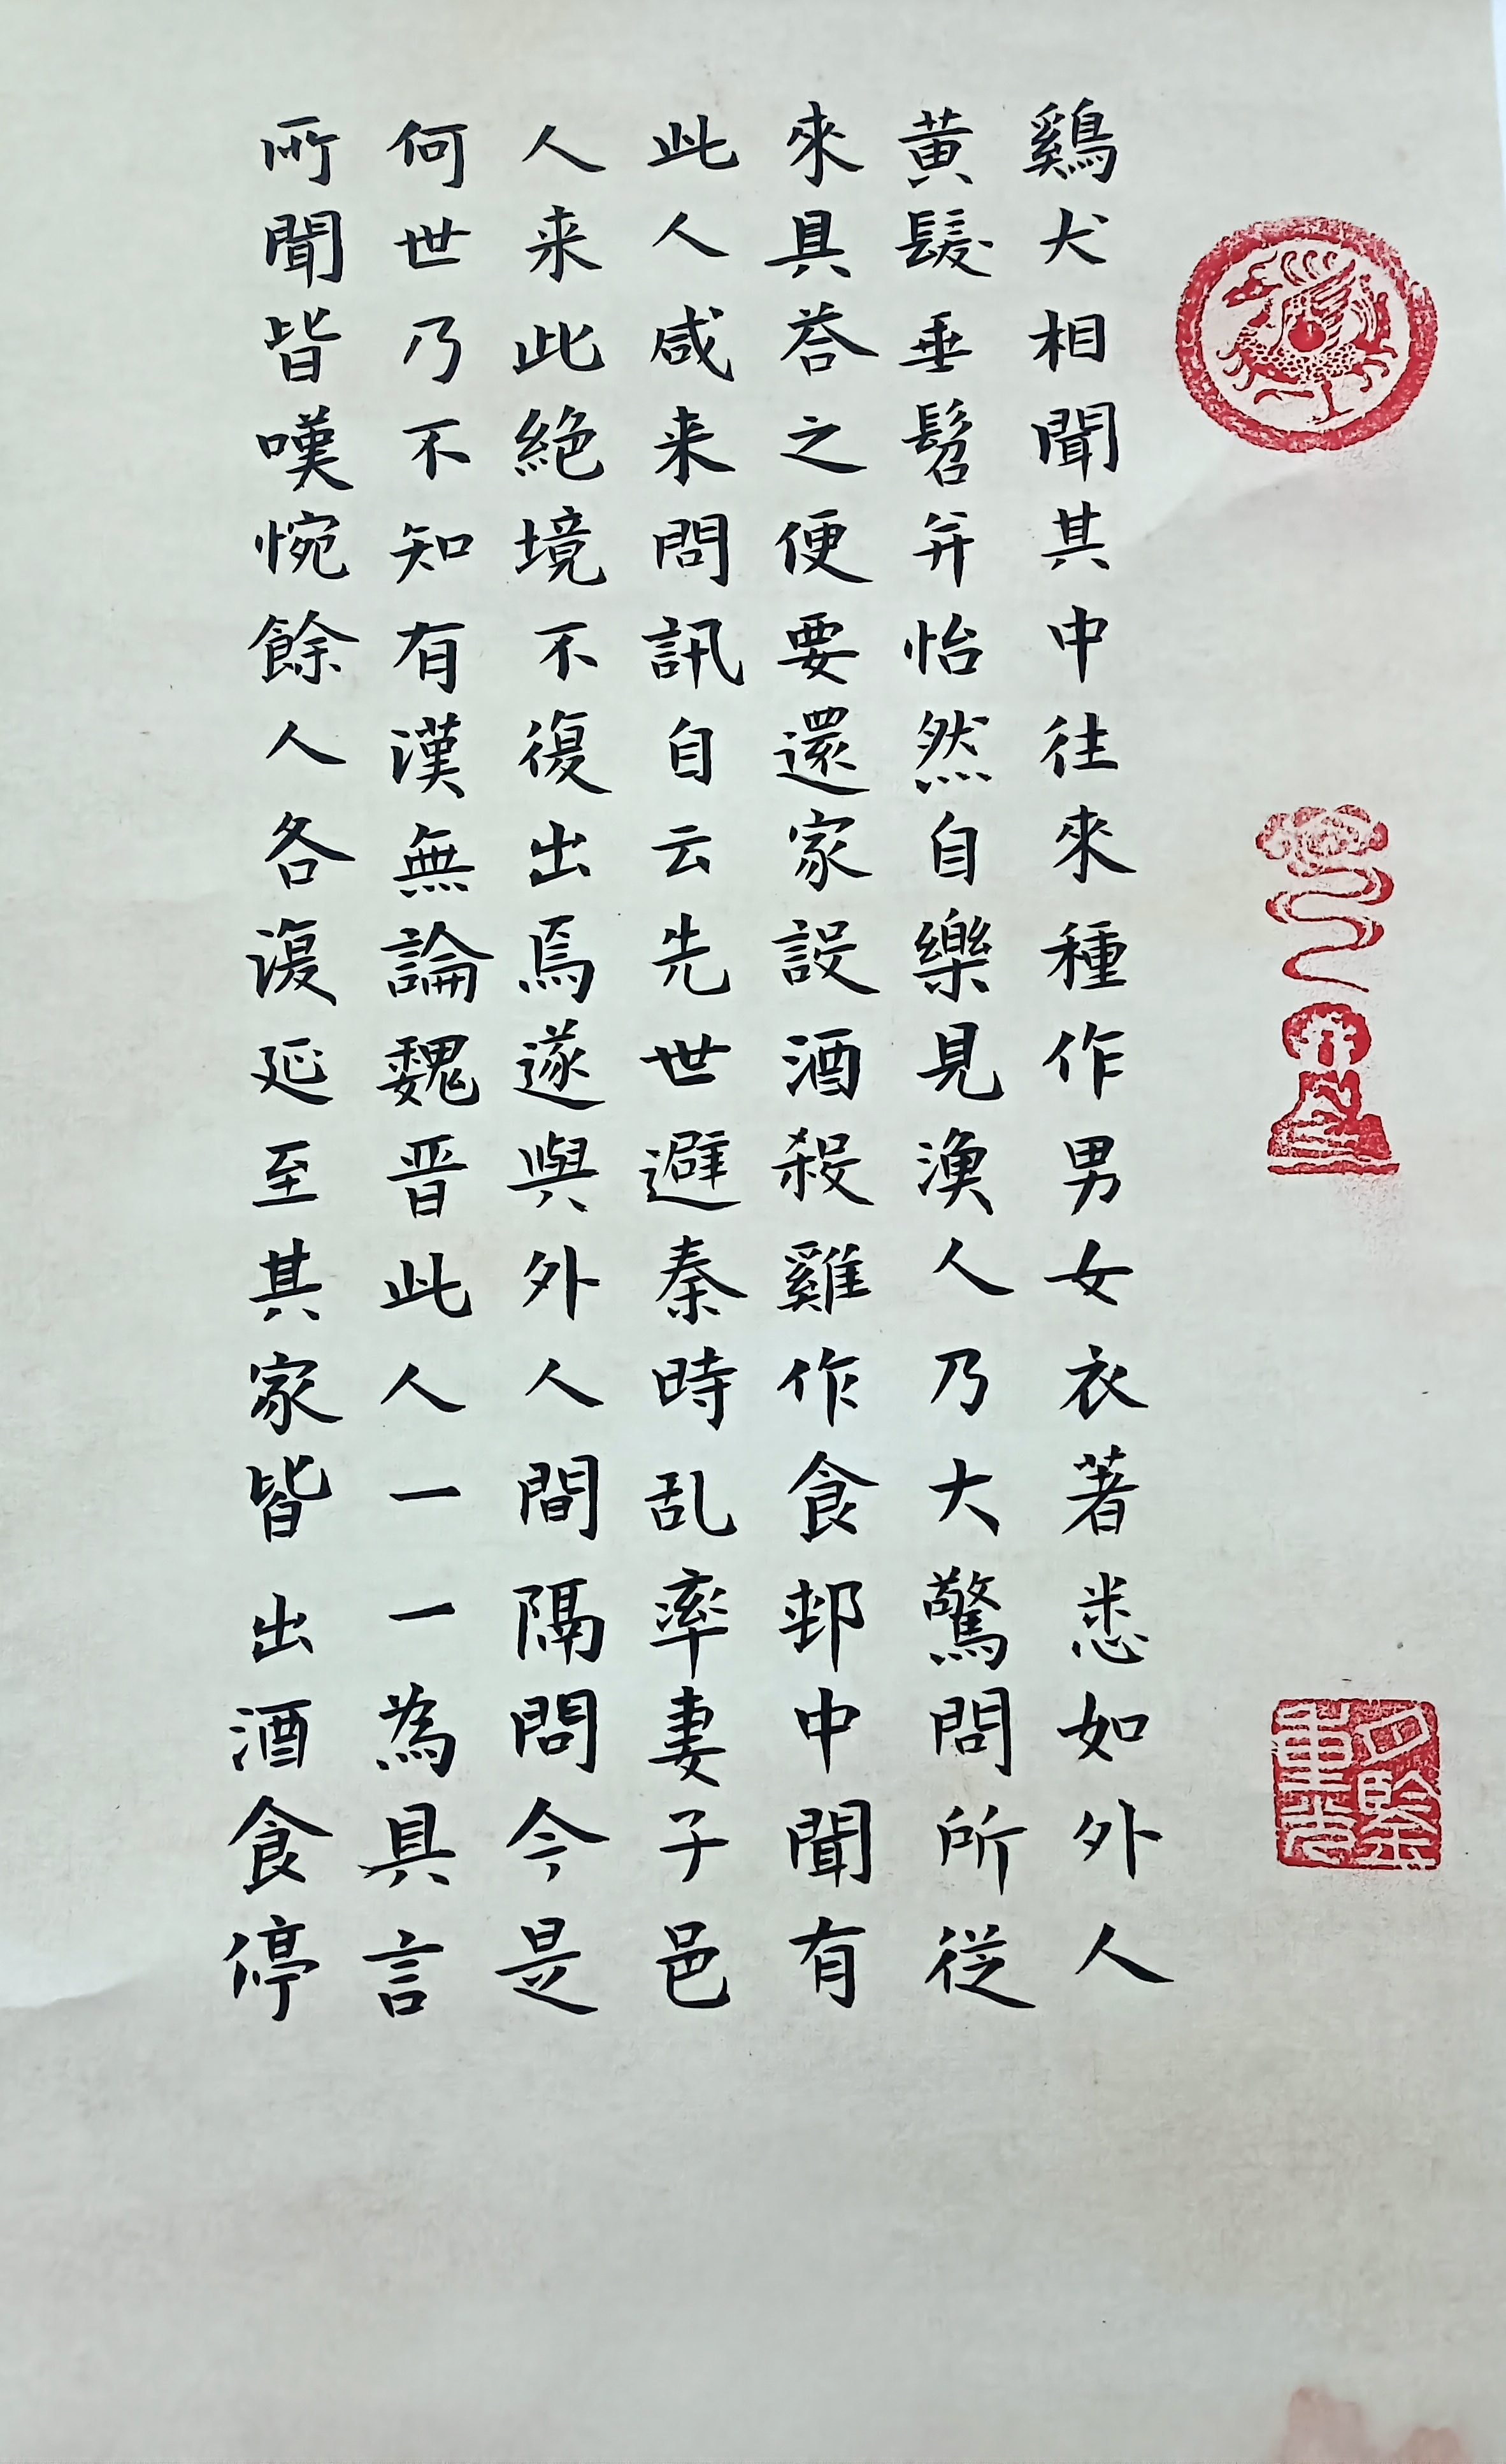 鷄犬相聞其中往來種作男女衣著悉如外人
黄髮垂髫并怡然自樂見漁人乃大驚問所從
來具荅之便要還家設酒殺雞作食邨中聞有
此人咸来問訊自云先世避秦時乱率妻子邑
人来此絶境不復出焉遂與外人間隔問今是
何世乃不知有漢無論魏晋此人一一為具言
所聞皆嘆惋餘人各復延至其家皆出酒食停